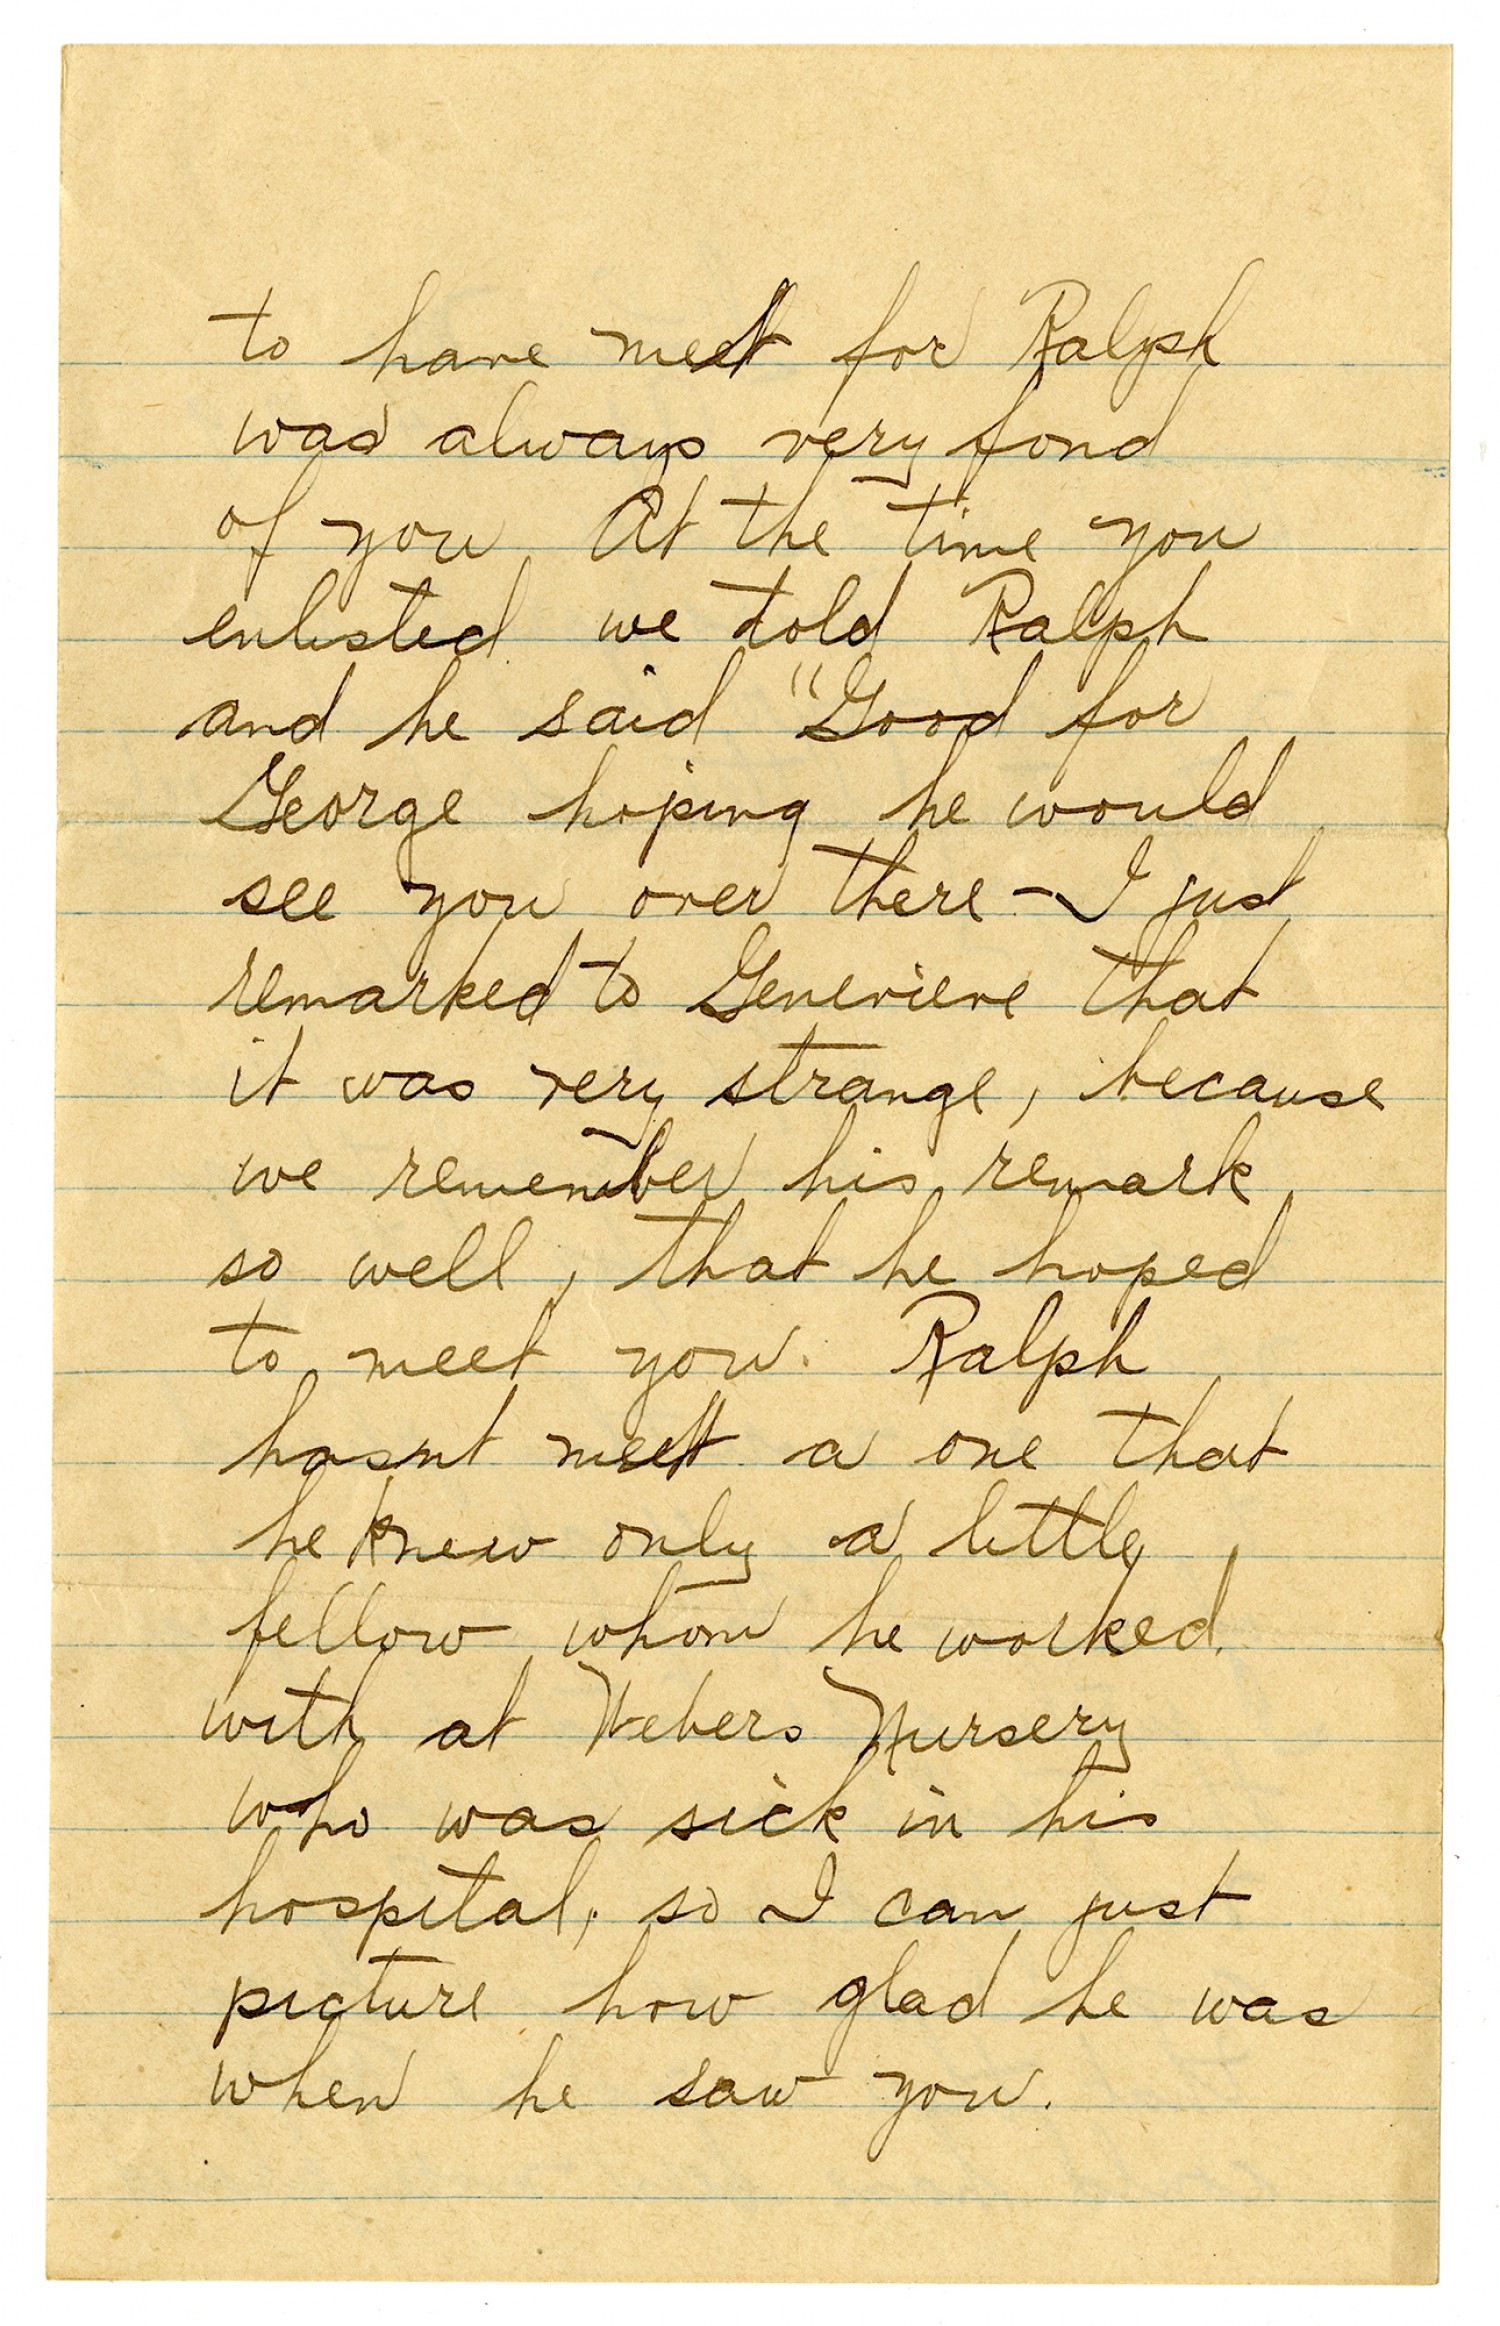 to have met for Ralph
was always very fond
of you. At the time you
enlisted we told Ralph
and he said "Good for
George hoping he would
see you over there - I just
remarked to Genevieve that
it was very strange, because
we remember his remark
so well, that he hoped
to meet you. Ralph
hasnt met a one that
he knew only a little
fellow whom he worked
with at Webers Nursery
who was sick in his
hospital, so I can just
picture how glad he was
when he saw you.